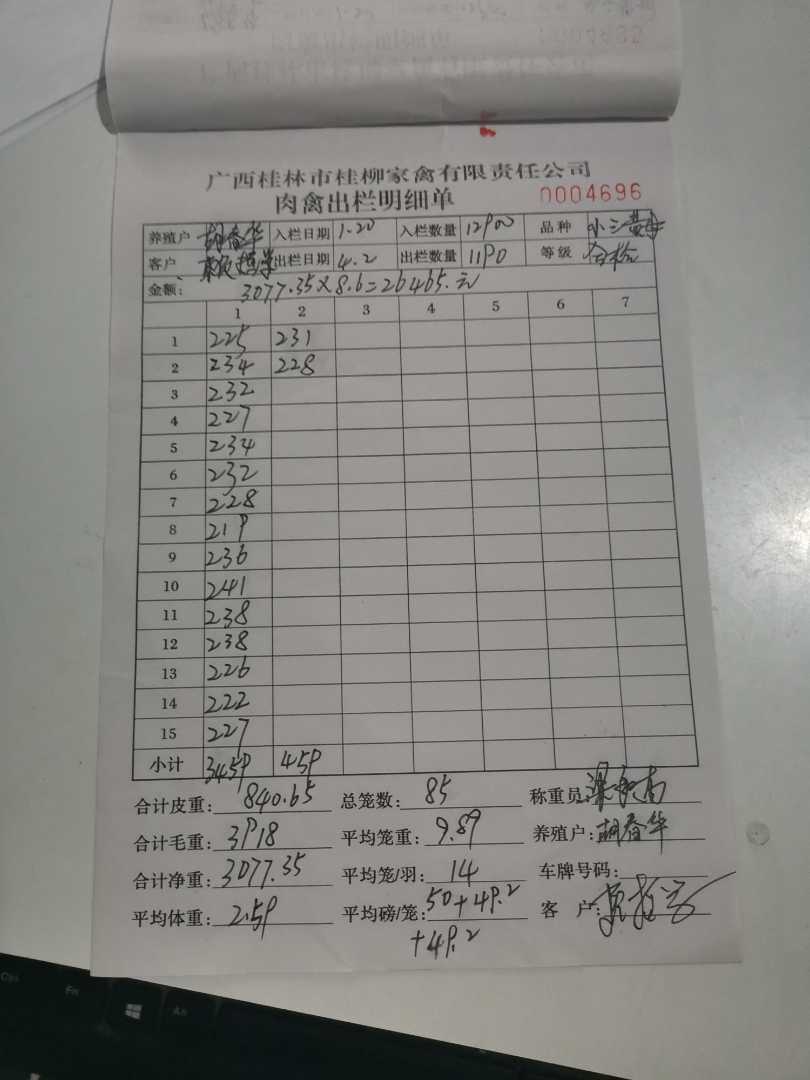 广西桂林市桂柳家禽有限责任公司
肉禽出栏明细单 0004696
养殖户 胡春华 入栏日期 1.20 入栏数量 12900 品种 小三黄
客户 出栏日期 4.2 出栏数量 1190 等级 合格
金额: 3077.35×8.6=26465.元
1 2 3 4 5 6 7
1 225 231
2 234 228
3 232
4 227
5 234
6 232
7 228
8 219
9 236
10 241
11 238
12 238
13 226
14 222
15 227
小计 3459 459
合计皮重: 840.65 总笼数: 85 称重员:
合计毛重: 3918 平均笼重: 9.89 养殖户: 胡春华
合计净重: 3077.35 平均笼/羽: 14 车牌号码:
平均体重: 2.59 平均磅/笼: 50+49.2 客 户:
+49.2
Ctrl Fn Alt